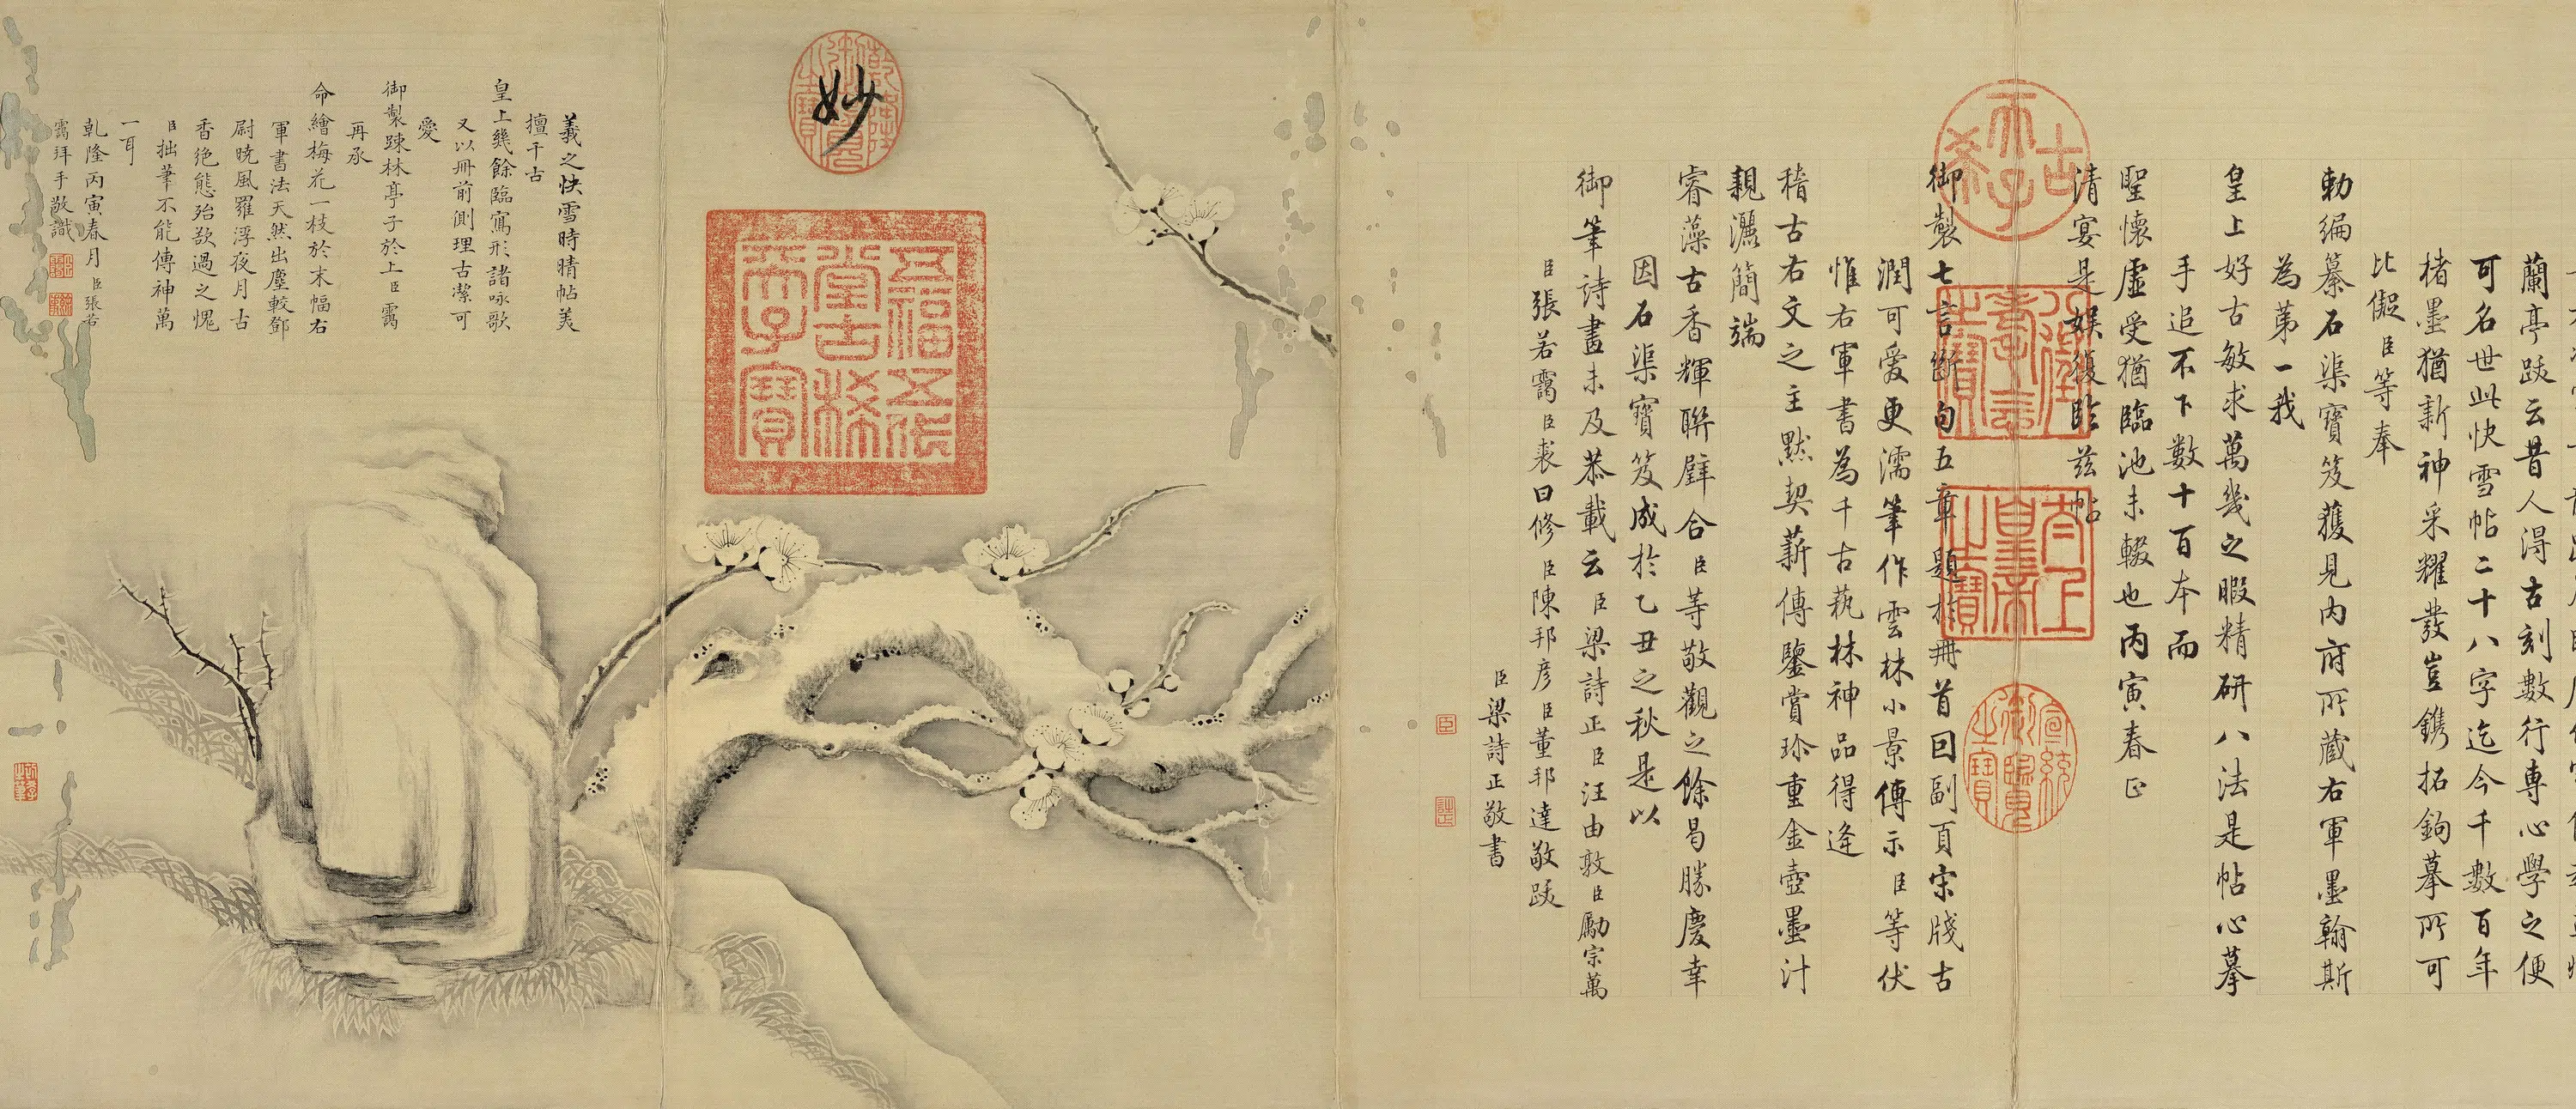 蘭亭跋云昔人得古刻數行專心學之便
可名世此快雪帖二十八字迄今千數百年
楮墨猶新神采耀發豈鐫拓鉤摹所可
比儗臣等奉
勅編纂石渠寶笈獲見內府所藏右軍墨翰斯
為第一我
皇上好古敏求萬幾之暇精研八法是帖心摹
手追不下數十百本而
聖懷虛受猶臨池未輟也丙寅春正
清宴是娛復臨茲帖
古希天子
八徵耄念之寶
太上皇帝之寶
宣統御覽之寶
御製七言斷句五章題於冊首回副頁宋牋古
潤可愛更濡筆作雲林小景傳示臣等伏
惟右軍書為千古蓺林神品得逢
稽古右文之主默契薪傳鑒賞珍重金壺墨汁
親灑簡端
睿藻古香輝聯璧合臣等敬觀之餘曷勝慶幸
因石渠寶笈成於乙丑之秋是以
御筆詩畫未及恭載云臣梁詩正臣汪由敦臣勵宗萬
臣張若靄臣裘曰修臣陳邦彥臣董邦達敬跋
臣梁詩正敬書
妙
乾隆御覽之寶
五福五代堂古稀天子寶
羲之快雪時晴帖美
擅千古
皇上幾餘臨寫形諸咏歌
又以冊前側理古潔可
愛
御製疎林亭子於上臣靄
再承
命繪梅花一枝於末幅右
軍書法天然出塵較鄧
尉曉風羅浮夜月古
香絕態殆欲過之愧
臣拙筆不能傳神萬
一耳
乾隆丙寅春月臣張若
靄拜手敬識